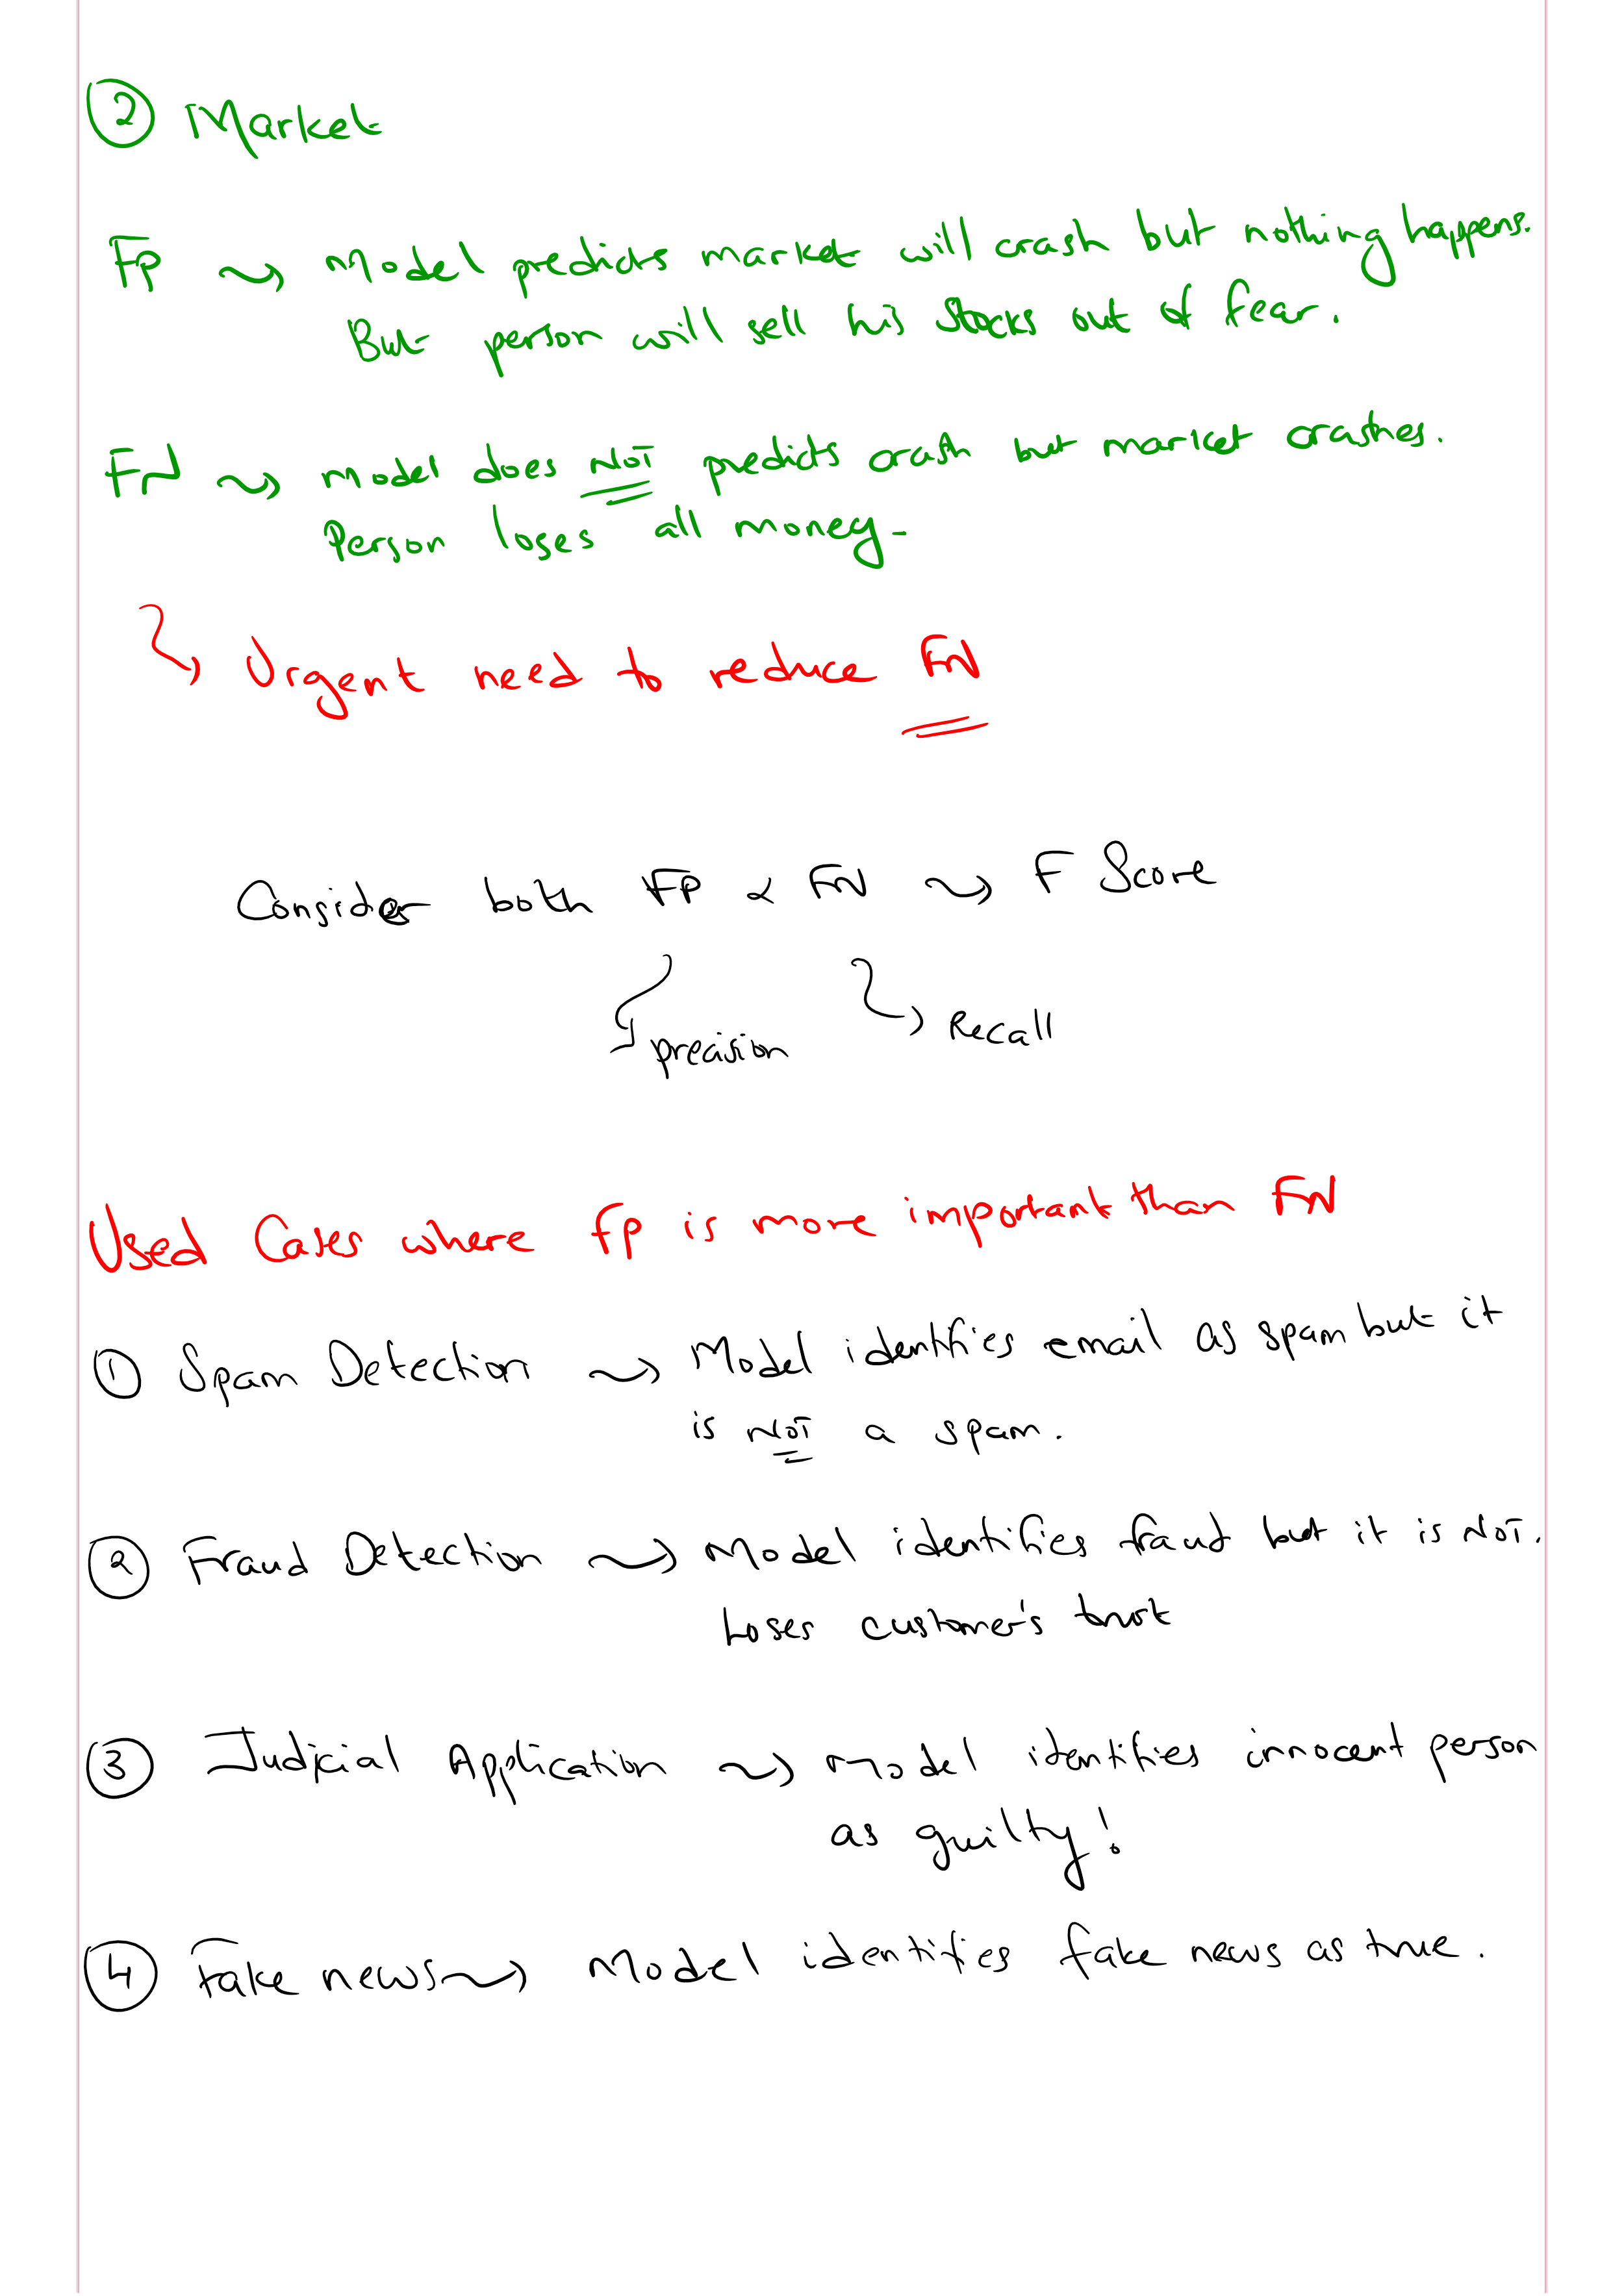 ② Market
FP → Model predicts market will crash but nothing happens.
But person will sell his stocks out of fear.
FN → model does NOT predicts crash but market crashes.
Person loses all money.
→ Urgent need to reduce FN
Consider both FP & FN → F Score
→ precision → Recall
Used Cases where FP is more important than FN
① Spam Detection → Model identifies email as spam but it
is NOT a spam.
② Fraud Detection → Model identifies fraud but it is NOT.
Loses customer's trust
③ Judicial Application → Model identifies innocent person
as guilty!
④ Fake news → Model identifies fake news as true.